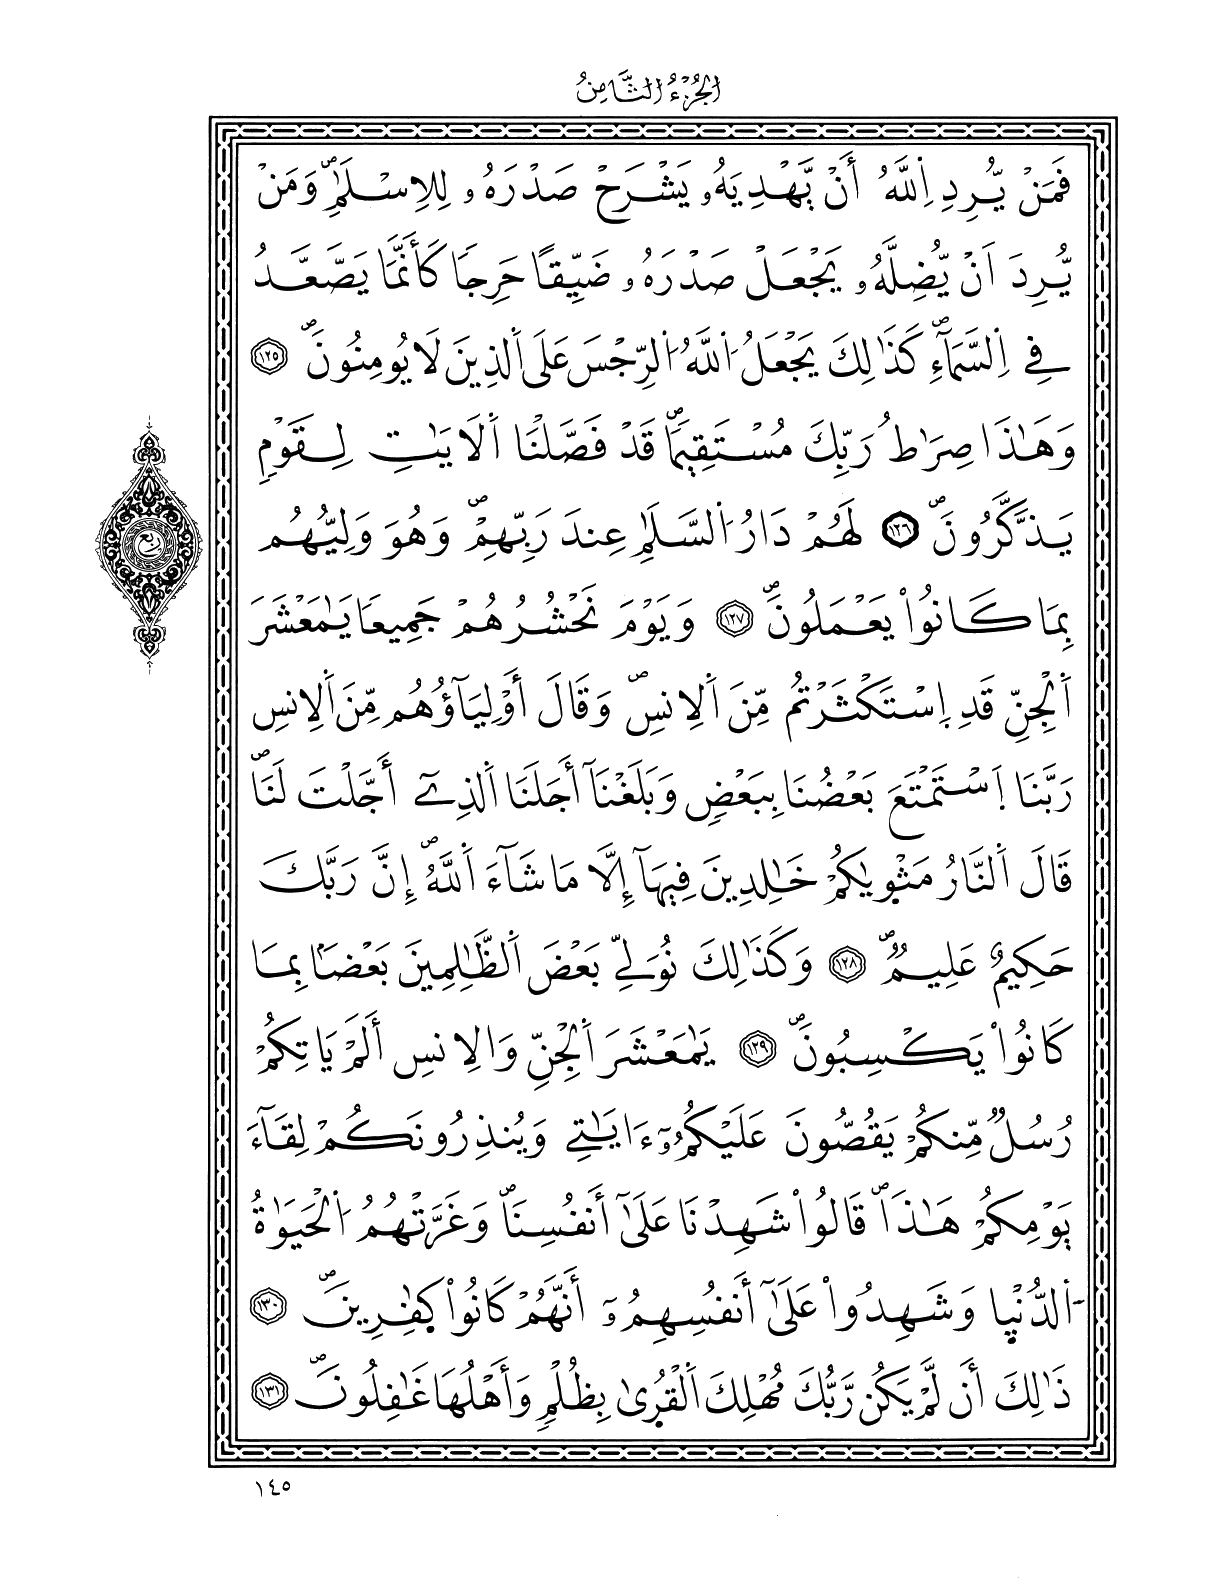 الجُزْءُ الثَّامِنُ
فَمَنْ يُّرِدِ اِ۬للَّهُ أَنْ يَّهْدِيَهُۥ يَشْرَحْ صَدْرَهُۥ لِلِاسْلَٰمِۖ وَمَنْ
يُّرِدَ اَنْ يُّضِلَّهُۥ يَجْعَلْ صَدْرَهُۥ ضَيِّقاً حَرِجاٗ كَأَنَّمَا يَصَّعَّدُ
فِے اِ۬لسَّمَآءِۖ كَذَٰلِكَ يَجْعَلُ اُ۬للَّهُ اُ۬لرِّجْسَ عَلَي اَ۬لذِينَ لَا يُومِنُونَۖ ١٢٥
وَهَٰذَا صِرَٰطُ رَبِّكَ مُسْتَقِيماٗۖ قَدْ فَصَّلْنَا اَ۬لَايَٰتِ لِقَوْمٖ
يَذَّكَّرُونَۖ ١٢٦ لَهُمْ دَارُ اُ۬لسَّلَٰمِ عِندَ رَبِّهِمْۖ وَهُوَ وَلِيُّهُم
بِمَا كَانُواْ يَعْمَلُونَۖ ١٢٧ وَيَوْمَ نَحْشُرُهُمْ جَمِيعاٗ يَٰمَعْشَرَ
اَ۬لْجِنِّ قَدِ اِ۪سْتَكْثَرْتُم مِّنَ اَ۬لِانسِۖ وَقَالَ أَوْلِيَآؤُهُم مِّنَ اَ۬لِانسِ
رَبَّنَا اَ۪سْتَمْتَعَ بَعْضُنَا بِبَعْضٖ وَبَلَغْنَآ أَجَلَنَا اَ۬لذِےٓ أَجَّلْتَ لَنَاۖ
قَالَ اَ۬لنَّارُ مَثْو۪يٰكُمْ خَٰلِدِينَ فِيهَآ إِلَّا مَا شَآءَ اَ۬للَّهُۖ إِنَّ رَبَّكَ
حَكِيمٌ عَلِيمٞۖ ١٢٨ وَكَذَٰلِكَ نُوَلِّے بَعْضَ اَ۬لظَّٰلِمِينَ بَعْضاَۢ بِمَا
كَانُواْ يَكْسِبُونَۖ ١٢٩ يَٰمَعْشَرَ اَ۬لْجِنِّ وَالِانسِ أَلَمْ يَاتِكُمْ
رُسُلٞ مِّنكُمْ يَقُصُّونَ عَلَيْكُمُۥٓ ءَايَٰتِے وَيُنذِرُونَكُمْ لِقَآءَ
يَوْمِكُمْ هَٰذَاۖ قَالُواْ شَهِدْنَا عَلَىٰٓ أَنفُسِنَاۖ وَغَرَّتْهُمُ اُ۬لْحَيَوٰةُ
اُ۬لدُّنْي۪ا وَشَهِدُواْ عَلَىٰٓ أَنفُسِهِمُۥٓ أَنَّهُمْ كَانُواْ كٰ۪فِرِينَۖ ١٣٠
ذَٰلِكَ أَن لَّمْ يَكُن رَّبُّكَ مُهْلِكَ اَ۬لْقُر۪ىٰ بِظُلْمٖ وَأَهْلُهَا غَٰفِلُونَۖ ١٣١
ربع
١٤٥